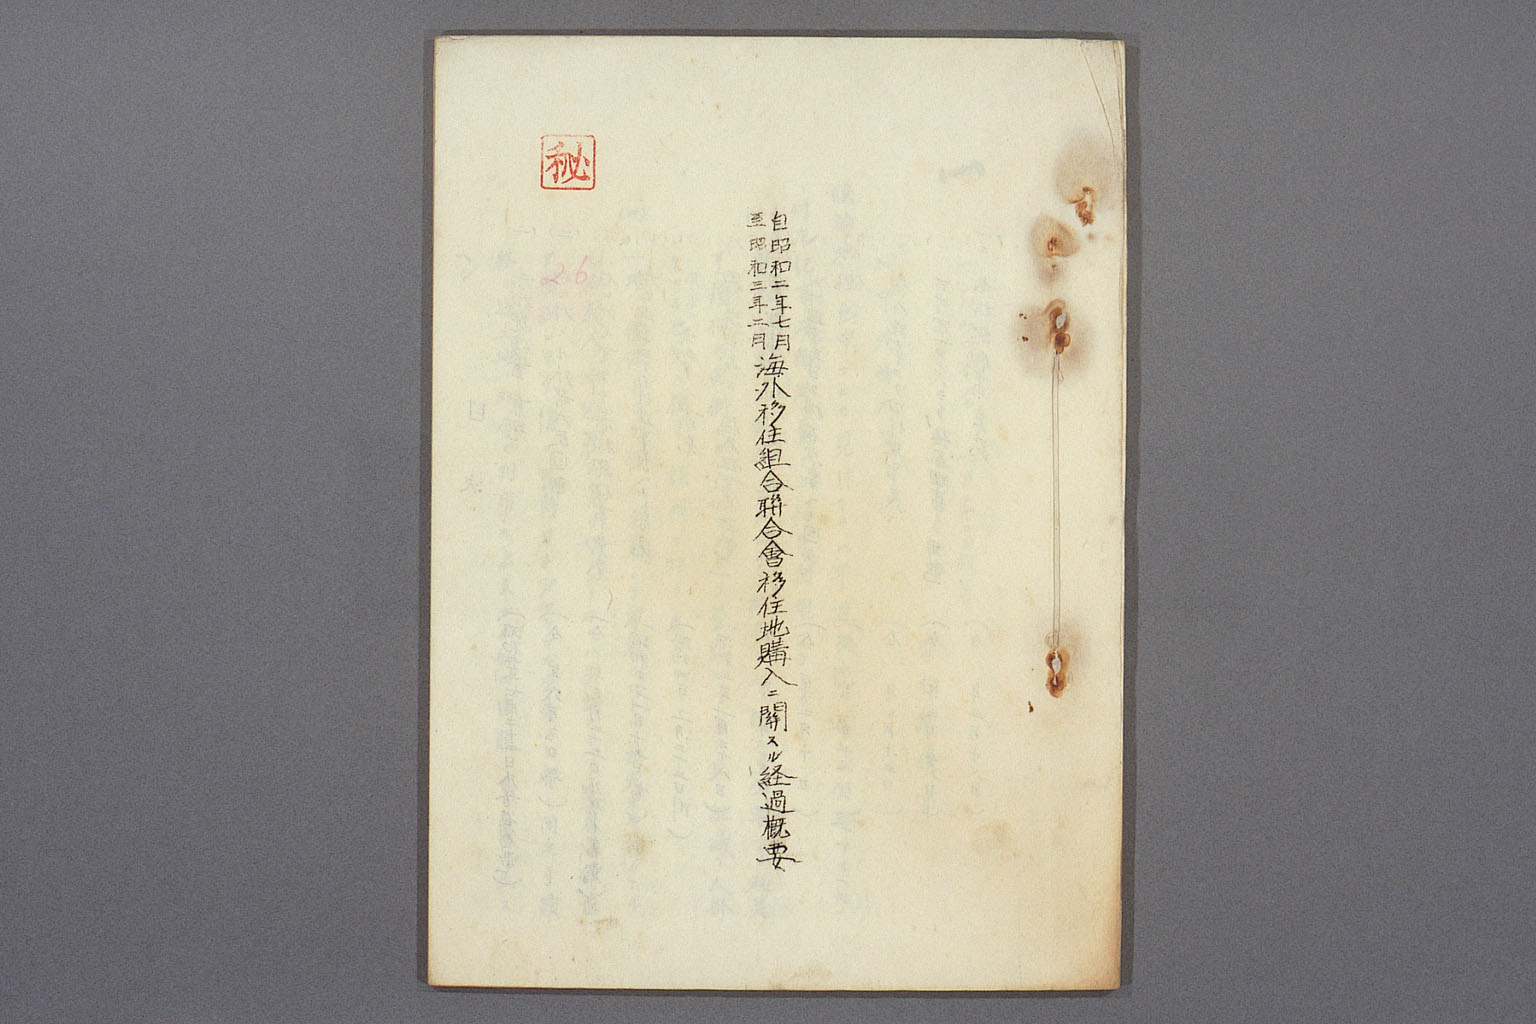 自昭和二年七月
至昭和三年二月
海外移住組合聯合會移住地購入ニ關スル経過概要
秘
26